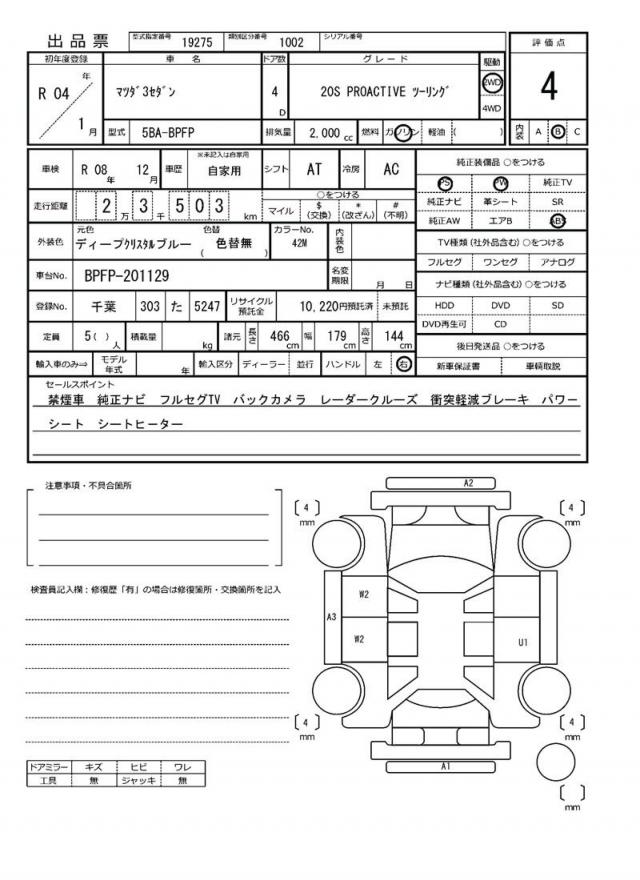 出品票 型式指定番号 19275 類別区分番号 1002 シリアル番号
初年度登録 車名 ドア数 グレード 駆動 評価点
R 04 年 1 月 ﾏﾂﾀﾞ3ｾﾀﾞﾝ 4 D 20S PROACTIVE ﾂｰﾘﾝｸﾞ 2WD 4WD 4
型式 5BA-BPFP 排気量 2,000 cc 燃料 ガソリン 軽油 ( ) 内装 A B C
車検 R 08 年 12 月 車歴 ※未記入は自家用 自家用 シフト AT 冷房 AC 純正装備品 ○をつける
PS PW 純正TV
走行距離 2 万 3 千 5 0 3 km ○をつける マイル $ (交換) * (改ざん) # (不明) 純正ナビ 革シート SR
純正AW エアB ABS
外装色 元色 ディープｸﾘｽﾀﾙブルー 色替 ( 色替無 ) カラーNo. 42M 内装色 TV種類 (社外品含む) ○をつける
フルセグ ワンセグ アナログ
車台No. BPFP-201129 名変期限 月 日 ナビ種類 (社外品含む) ○をつける
登録No. 千葉 303 た 5247 リサイクル預託金 10,220円預託済 未預託 HDD DVD SD
DVD再生可 CD
定員 5( ) 人 積載量 kg 諸元 長さ 466 cm 幅 179 cm 高さ 144 cm 後日発送品 ○をつける
輸入車のみ⇒ モデル年式 年 輸入区分 ディーラー 並行 ハンドル 左 右 新車保証書 車輌取説
セールスポイント
禁煙車 純正ナビ フルセグTV バックカメラ レーダークルーズ 衝突軽減ブレーキ パワー
シート シートヒーター
注意事項・不具合箇所
A2
4 mm 4 mm
検査員記入欄：修復歴「有」の場合は修復箇所・交換箇所を記入
W2
A3
W2 U1
4 mm 4 mm
A1
ドアミラー キズ ヒビ ワレ
工具 無 ジャッキ 無
mm